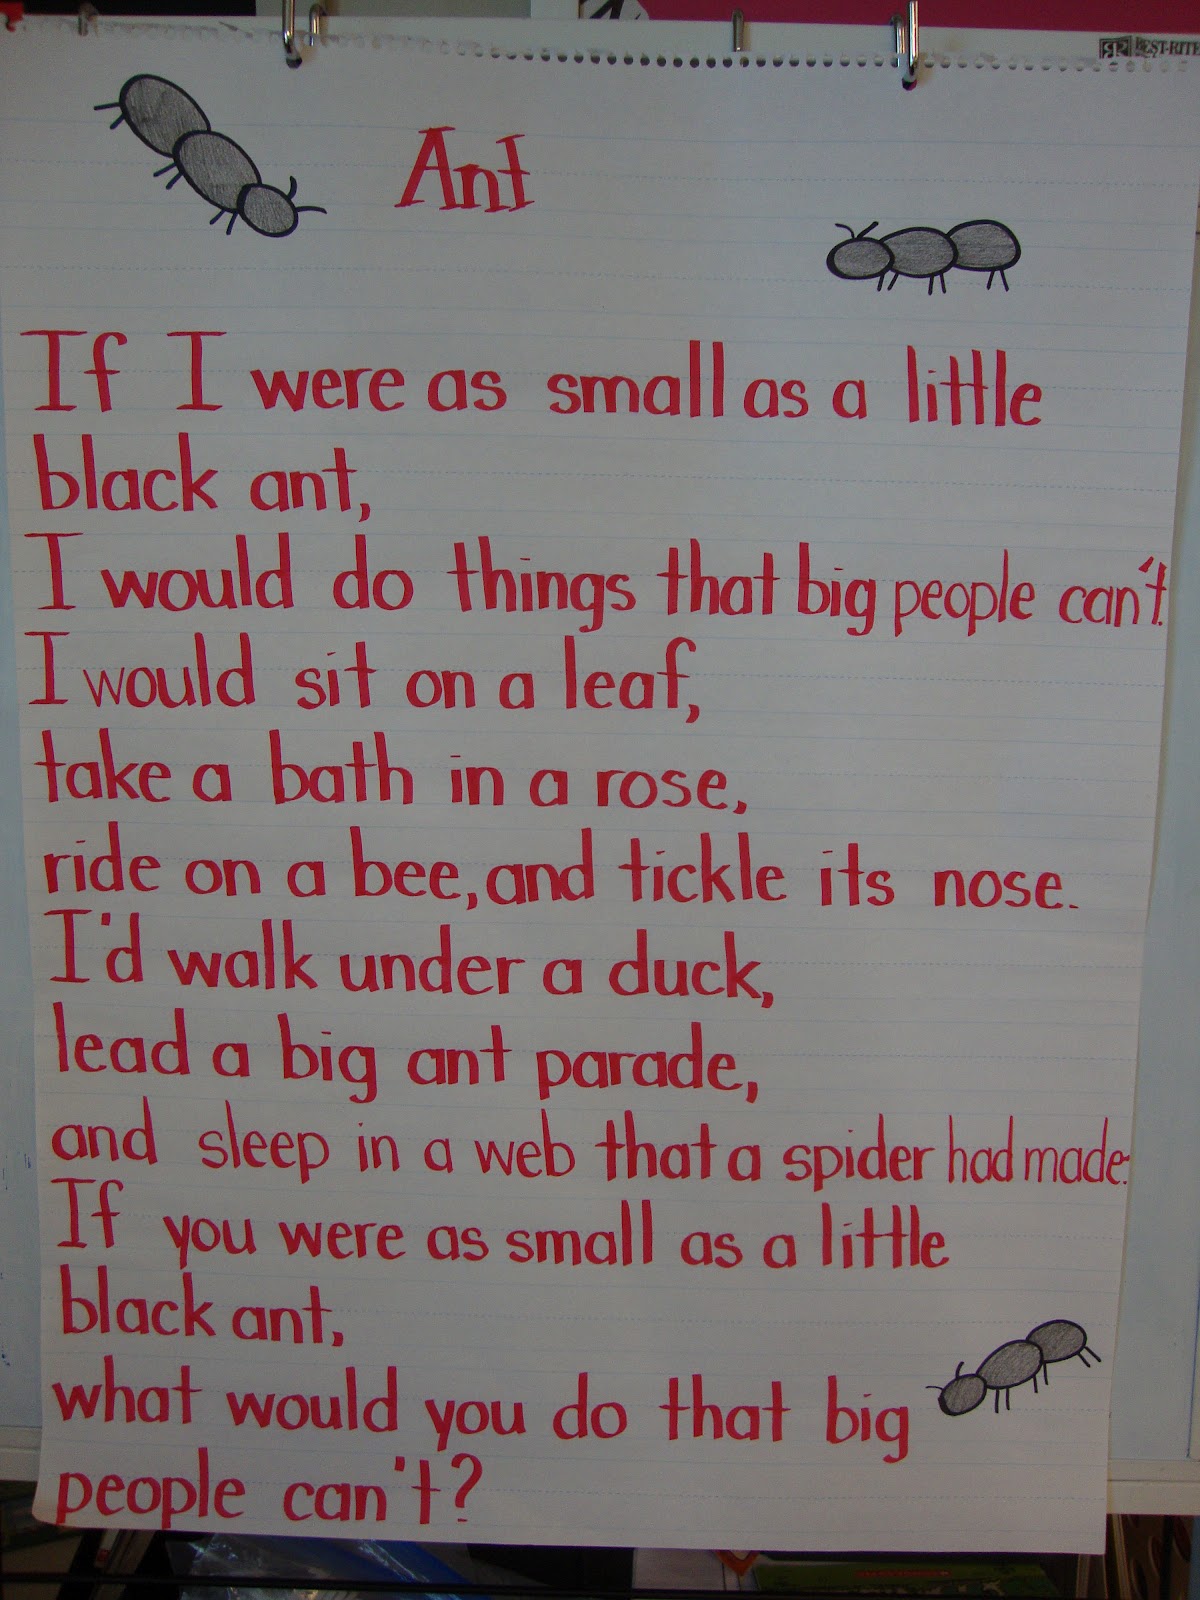 BEST-RITE
Ant
If I were as small as a little
black ant,
I would do things that big people can't.
I would sit on a leaf,
take a bath in a rose,
ride on a bee, and tickle its nose.
I'd walk under a duck,
lead a big ant parade,
and sleep in a web that a spider had made.
If you were as small as a little
black ant,
what would you do that big
people can't?